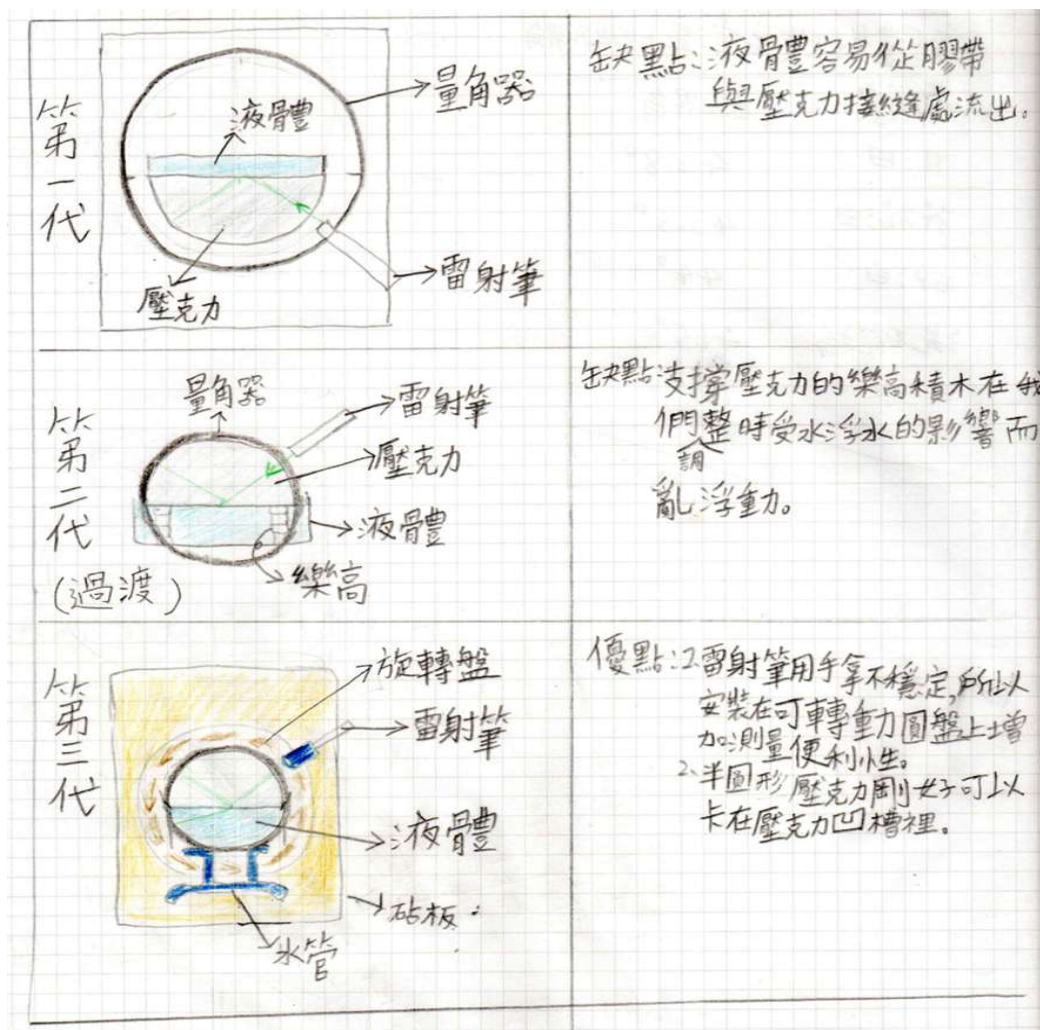 第一代
量角器
液體
雷射筆
壓克力
缺點:液體容易從膠帶
與壓克力接縫處流出。
第二代
(過渡)
量角器
雷射筆
壓克力
液體
樂高
缺點:支撐壓克力的樂高積木在我
們調整時受水浮水的影響而
亂浮動。
第三代
旋轉盤
雷射筆
液體
砧板
水管
優點:1.雷射筆用手拿不穩定,所以
安裝在可轉動力圓盤上增
加測量便利性。
2.半圓形壓克力剛好可以
卡在壓克力凹槽裡。